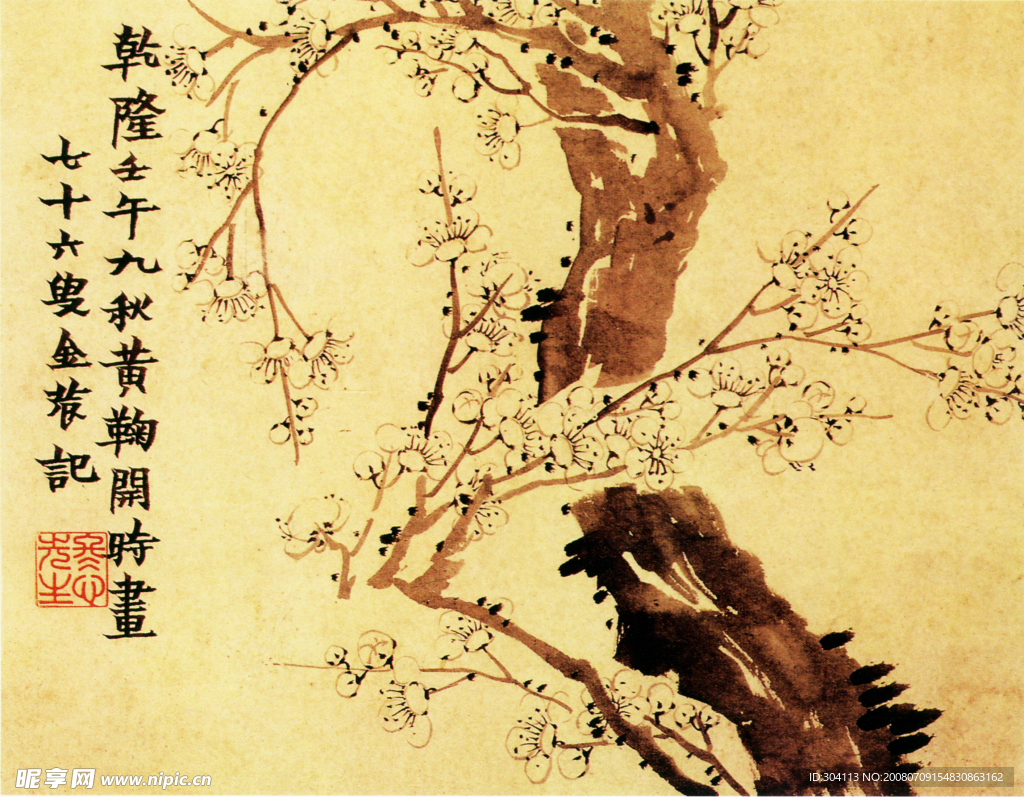 乾隆壬午九秋黄鞠開時畫
七十六叟金農記
冬心
先生
昵享网 www.nipic.cn
ID:304113 NO:20080709154830863162